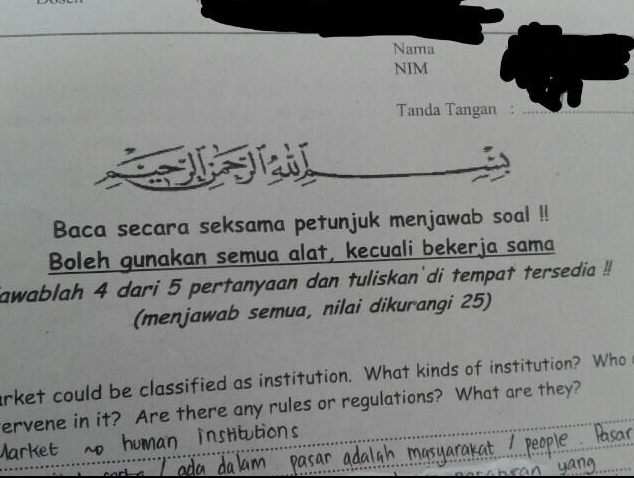 Dosen
Nama
NIM
Tanda Tangan :
بسم الله الرحمن الرحيم
Baca secara seksama petunjuk menjawab soal !!
Boleh gunakan semua alat, kecuali bekerja sama
awablah 4 dari 5 pertanyaan dan tuliskan di tempat tersedia !!
(menjawab semua, nilai dikurangi 25)
arket could be classified as institution. What kinds of institution? Who
ervene in it? Are there any rules or regulations? What are they?
Market ~> human institutions
/ ada dalam pasar adalah masyarakat / people. Pasar
yang